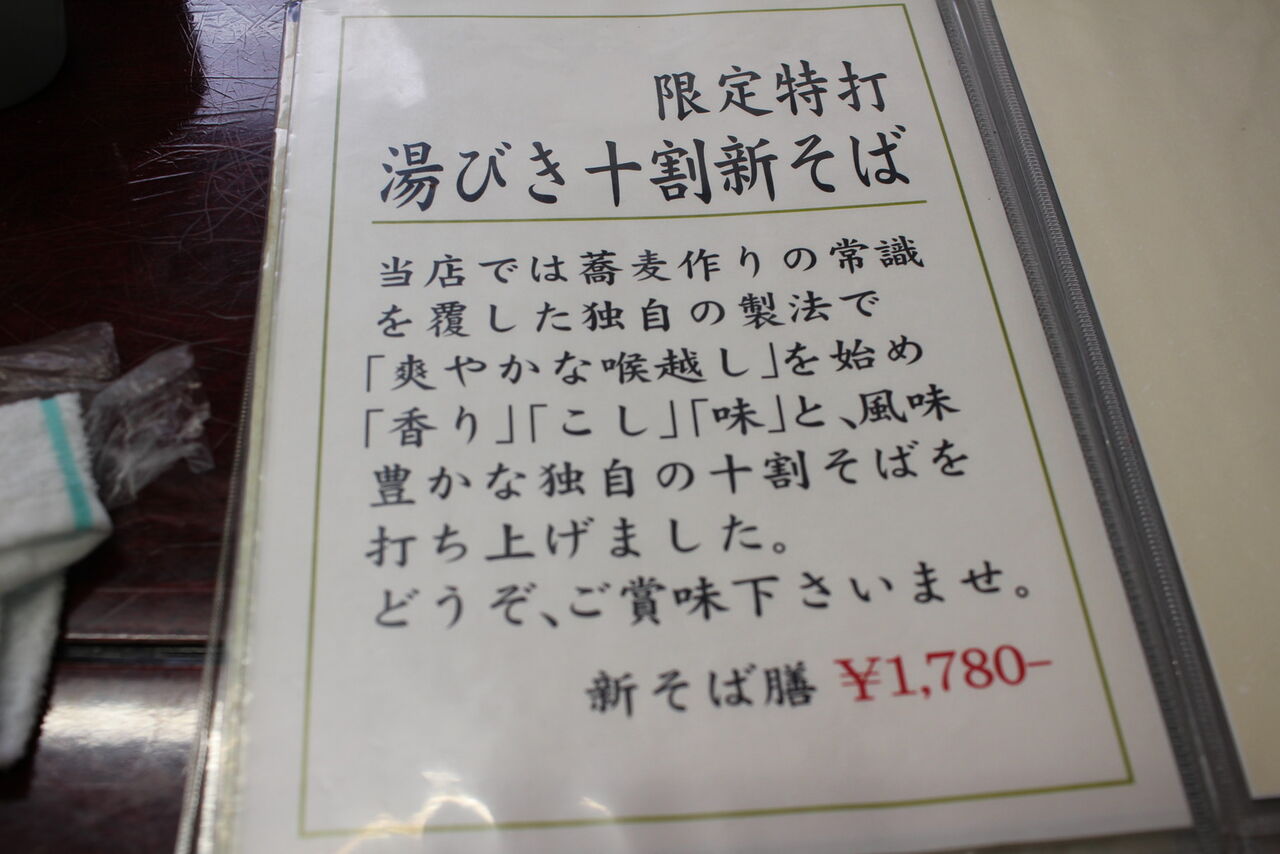 限定特打
湯びき十割新そば
当店では蕎麦作りの常識
を覆した独自の製法で
「爽やかな喉越し」を始め
「香り」「こし」「味」と、風味
豊かな独自の十割そばを
打ち上げました。
どうぞ、ご賞味下さいませ。
新そば膳 ¥1,780−